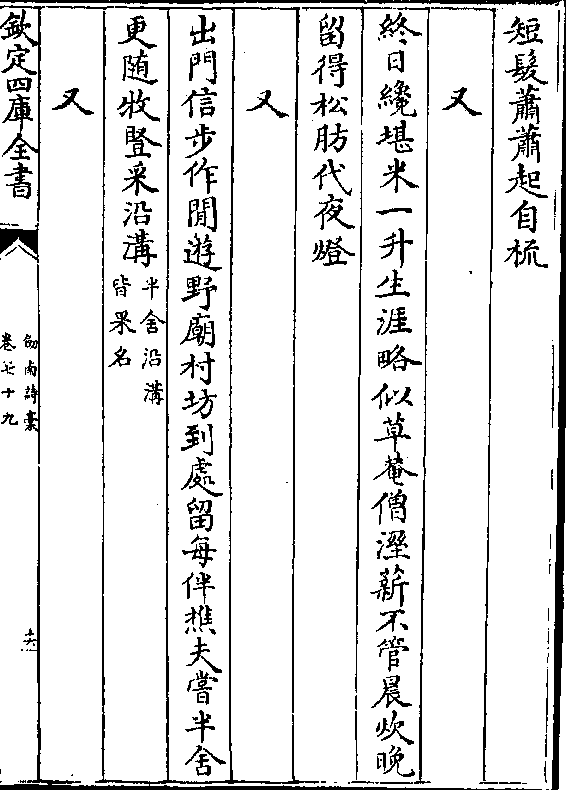 短髮蕭蕭起自梳
又
終日纔堪米一升生涯略似草菴僧溼薪不管晨炊晚
留得松肪代夜燈
又
出門信步作閒遊野廟村坊到處留每伴樵夫嘗半舍
更随牧豎采沿溝半舍沿溝
皆果名
又
欽定四庫全書
劒南詩稾
卷七十九
十六